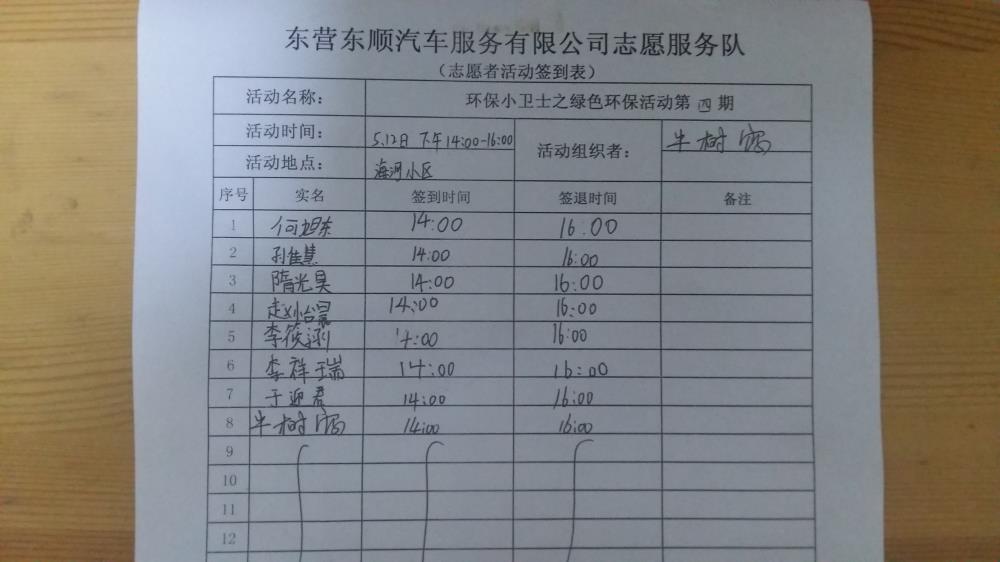 东营东顺汽车服务有限公司志愿服务队
（志愿者活动签到表）
活动名称： 环保小卫士之绿色环保活动第 四 期
活动时间： 5.12日 下午14:00-16:00 活动组织者： 牛树
活动地点： 海河小区
序号 实名 签到时间 签退时间 备注
1 何旭东 14:00 16:00
2 孙佳慧 14:00 16:00
3 隋光昊 14:00 16:00
4 赵怡 14:00 16:00
5 李筱 14:00 16:00
6 李祥瑞 14:00 16:00
7 于迎春 14:00 16:00
8 牛树 14:00 16:00
9
10
11
12